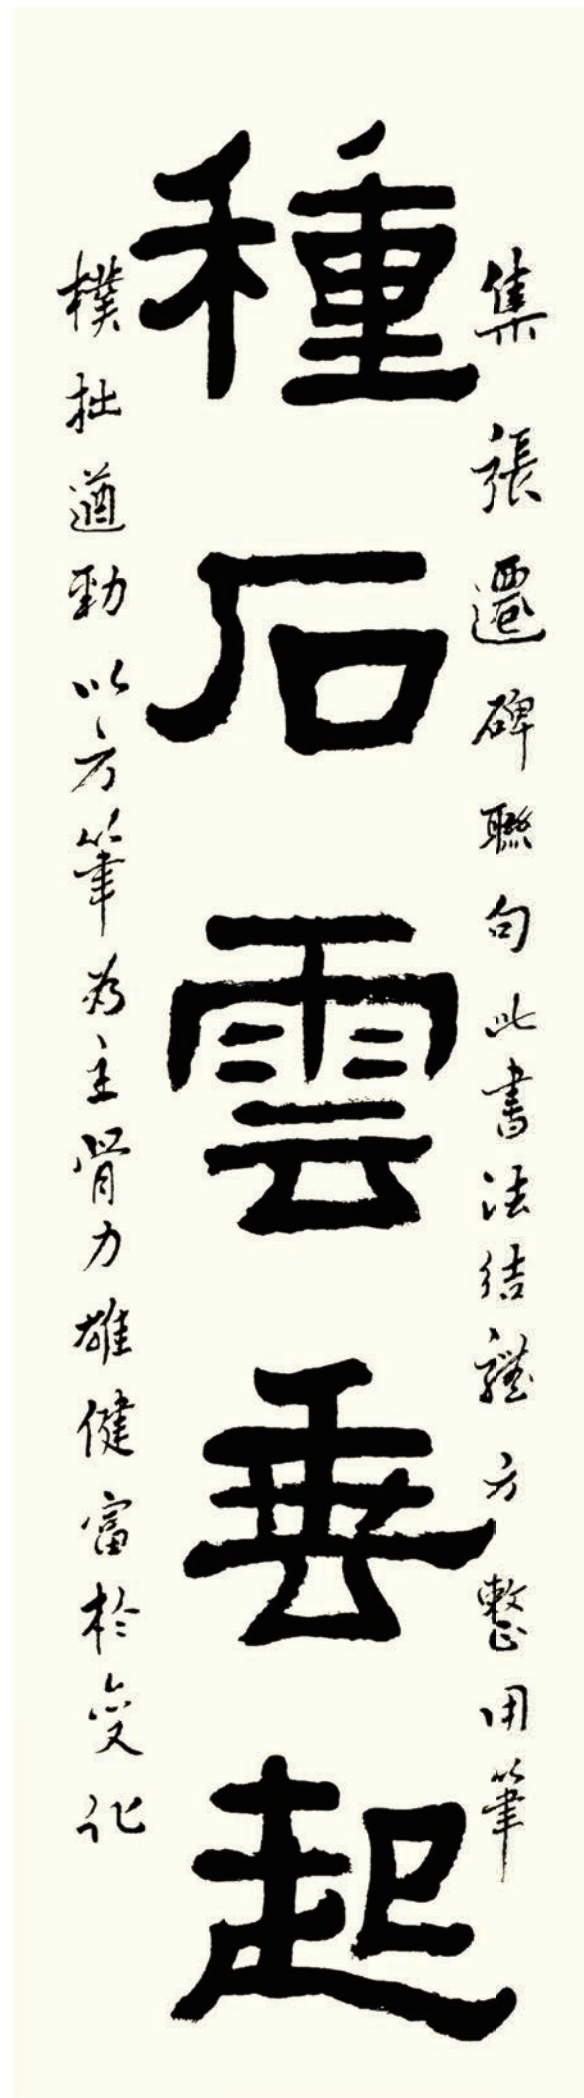 集張遷碑聯句此書法結體方整用筆
種石雲垂起
樸拙遒勁以方筆為主骨力雄健富於变化